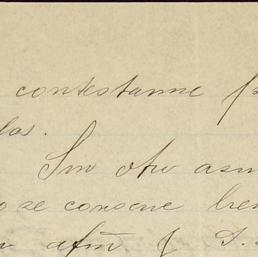 contestarme p
las.
Sin otro asun
o se conserve bien
afmo. y S. S.